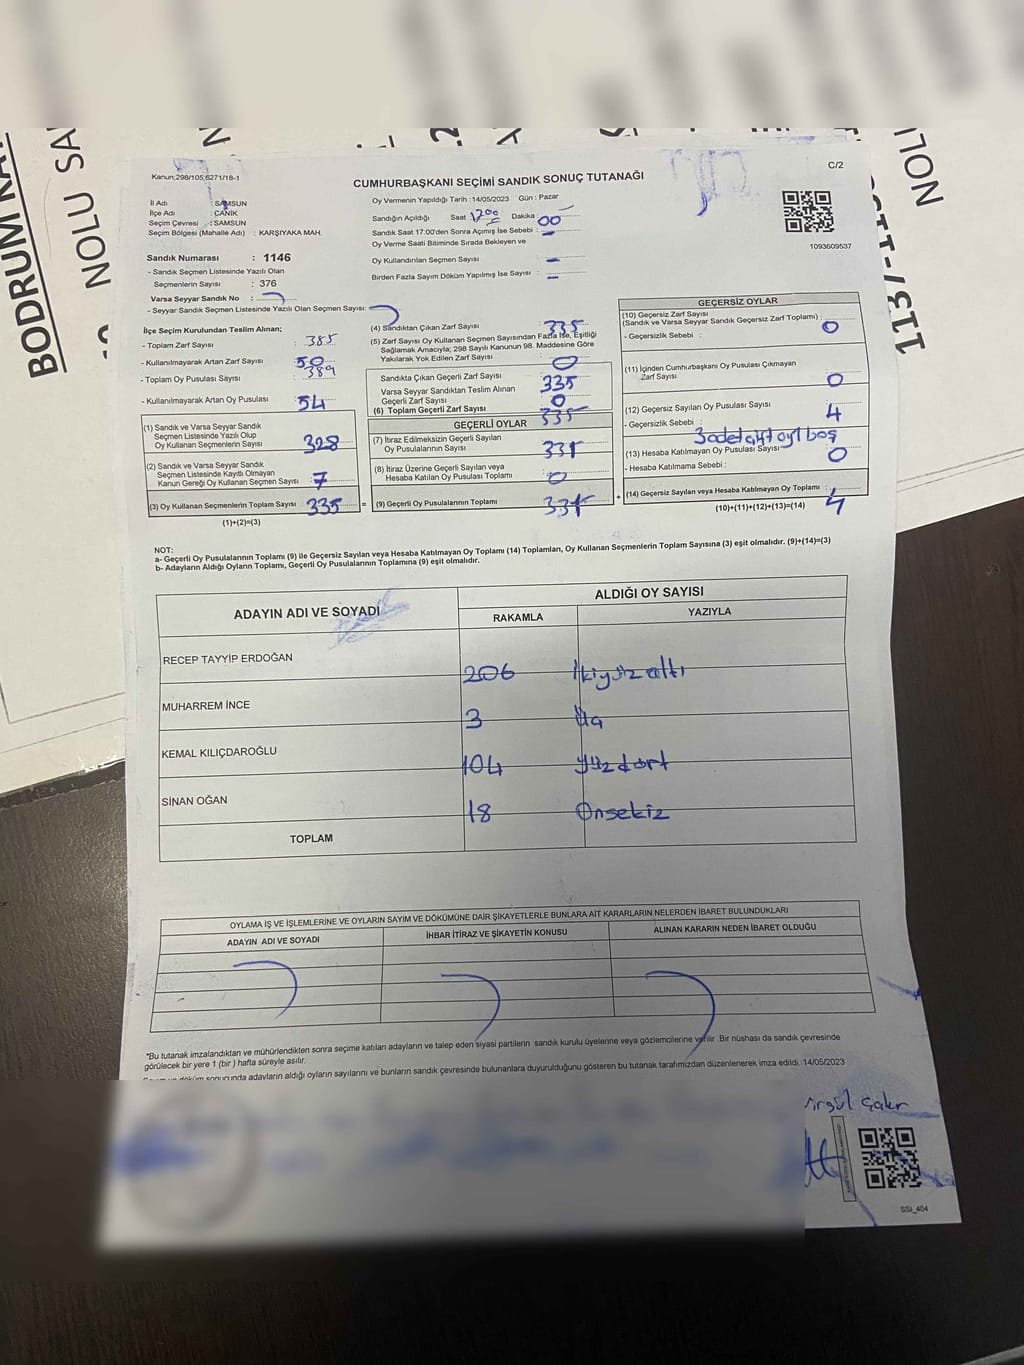 BODRUM KA
NOLU SA
NOLI
C/2
Kanun,298/105,6271/18-1
CUMHURBAŞKANI SEÇİMİ SANDIK SONUÇ TUTANAĞI
İl Adı : SAMSUN
İlçe Adı : CANİK
Seçim Çevresi : SAMSUN
Seçim Bölgesi (Mahalle Adı) : KARŞIYAKA MAH.
Oy Vermenin Yapıldığı Tarih : 14/05/2023 Gün : Pazar
Sandığın Açıldığı Saat 1700 Dakika 00
Sandık Saat 17:00'den Sonra Açımış İse Sebebi : -
Oy Verme Saati Bitiminde Sırada Bekleyen ve
Oy Kullandırılan Seçmen Sayısı : -
Birden Fazla Sayım Döküm Yapılmış İse Sayısı : -
1093609537
Sandık Numarası : 1146
- Sandık Seçmen Listesinde Yazılı Olan
Seçmenlerin Sayısı : 376
Varsa Seyyar Sandık No :
- Seyyar Sandık Seçmen Listesinde Yazılı Olan Seçmen Sayısı:
İlçe Seçim Kurulundan Teslim Alınan;
- Toplam Zarf Sayısı : 385
- Kullanılmayarak Artan Zarf Sayısı : 50
- Toplam Oy Pusulası Sayısı : 389
- Kullanılmayarak Artan Oy Pusulası : 54
(1) Sandık ve Varsa Seyyar Sandık
Seçmen Listesinde Yazılı Olup
Oy Kullanan Seçmenlerin Sayısı : 328
(2) Sandık ve Varsa Seyyar Sandık
Seçmen Listesinde Kayıtlı Olmayan
Kanun Gereği Oy Kullanan Seçmen Sayısı : 7
(3) Oy Kullanan Seçmenlerin Toplam Sayısı : 335
(1)+(2)=(3)
(4) Sandıktan Çıkan Zarf Sayısı : 335
(5) Zarf Sayısı Oy Kullanan Seçmen Sayısından Fazla İse, Eşitliği
Sağlamak Amacıyla; 298 Sayılı Kanunun 98. Maddesine Göre
Yakılarak Yok Edilen Zarf Sayısı : 0
Sandıkta Çıkan Geçerli Zarf Sayısı : 335
Varsa Seyyar Sandıktan Teslim Alınan
Geçerli Zarf Sayısı : 0
(6) Toplam Geçerli Zarf Sayısı : 335
GEÇERLİ OYLAR
(7) İtiraz Edilmeksizin Geçerli Sayılan
Oy Pusulalarının Sayısı : 331
(8) İtiraz Üzerine Geçerli Sayılan veya
Hesaba Katılan Oy Pusulası Toplamı : 0
= (9) Geçerli Oy Pusulalarının Toplamı : 331
GEÇERSİZ OYLAR
(10) Geçersiz Zarf Sayısı
(Sandık ve Varsa Seyyar Sandık Geçersiz Zarf Toplamı) : 0
- Geçersizlik Sebebi :
(11) İçinden Cumhurbaşkanı Oy Pusulası Çıkmayan
Zarf Sayısı : 0
(12) Geçersiz Sayılan Oy Pusulası Sayısı : 4
- Geçersizlik Sebebi : 3 adet boş
(13) Hesaba Katılmayan Oy Pusulası Sayısı : 0
- Hesaba Katılmama Sebebi :
+ (14) Geçersiz Sayılan veya Hesaba Katılmayan Oy Toplamı : 4
(10)+(11)+(12)+(13)=(14)
NOT:
a- Geçerli Oy Pusulalarının Toplamı (9) ile Geçersiz Sayılan veya Hesaba Katılmayan Oy Toplamı (14) Toplamları, Oy Kullanan Seçmenlerin Toplam Sayısına (3) eşit olmalıdır. (9)+(14)=(3)
b- Adayların Aldığı Oyların Toplamı, Geçerli Oy Pusulalarının Toplamına (9) eşit olmalıdır.
ADAYIN ADI VE SOYADI
ALDIĞI OY SAYISI
RAKAMLA YAZIYLA
RECEP TAYYİP ERDOĞAN 206 İkiyüzaltı
MUHARREM İNCE 3 Üç
KEMAL KILIÇDAROĞLU 104 Yüzdört
SİNAN OĞAN 18 Onsekiz
TOPLAM
OYLAMA İŞ VE İŞLEMLERİNE VE OYLARIN SAYIM VE DÖKÜMÜNE DAİR ŞİKAYETLERLE BUNLARA AİT KARARLARIN NELERDEN İBARET BULUNDUKLARI
ADAYIN ADI VE SOYADI İHBAR İTİRAZ VE ŞİKAYETİN KONUSU ALINAN KARARIN NEDEN İBARET OLDUĞU
*Bu tutanak imzalandıktan ve mühürlendikten sonra seçime katılan adayların ve talep eden siyasi partilerin sandık kurulu üyelerine veya gözlemcilerine verilir. Bir nüshası da sandık çevresinde
görülecek bir yere 1 (bir) hafta süreyle asılır.
sonucunda adayların aldığı oyların sayılarını ve bunların sandık çevresinde bulunanlara duyurulduğunu gösteren bu tutanak tarafımızdan düzenlenerek imza edildi. 14/05/2023
SSI_404